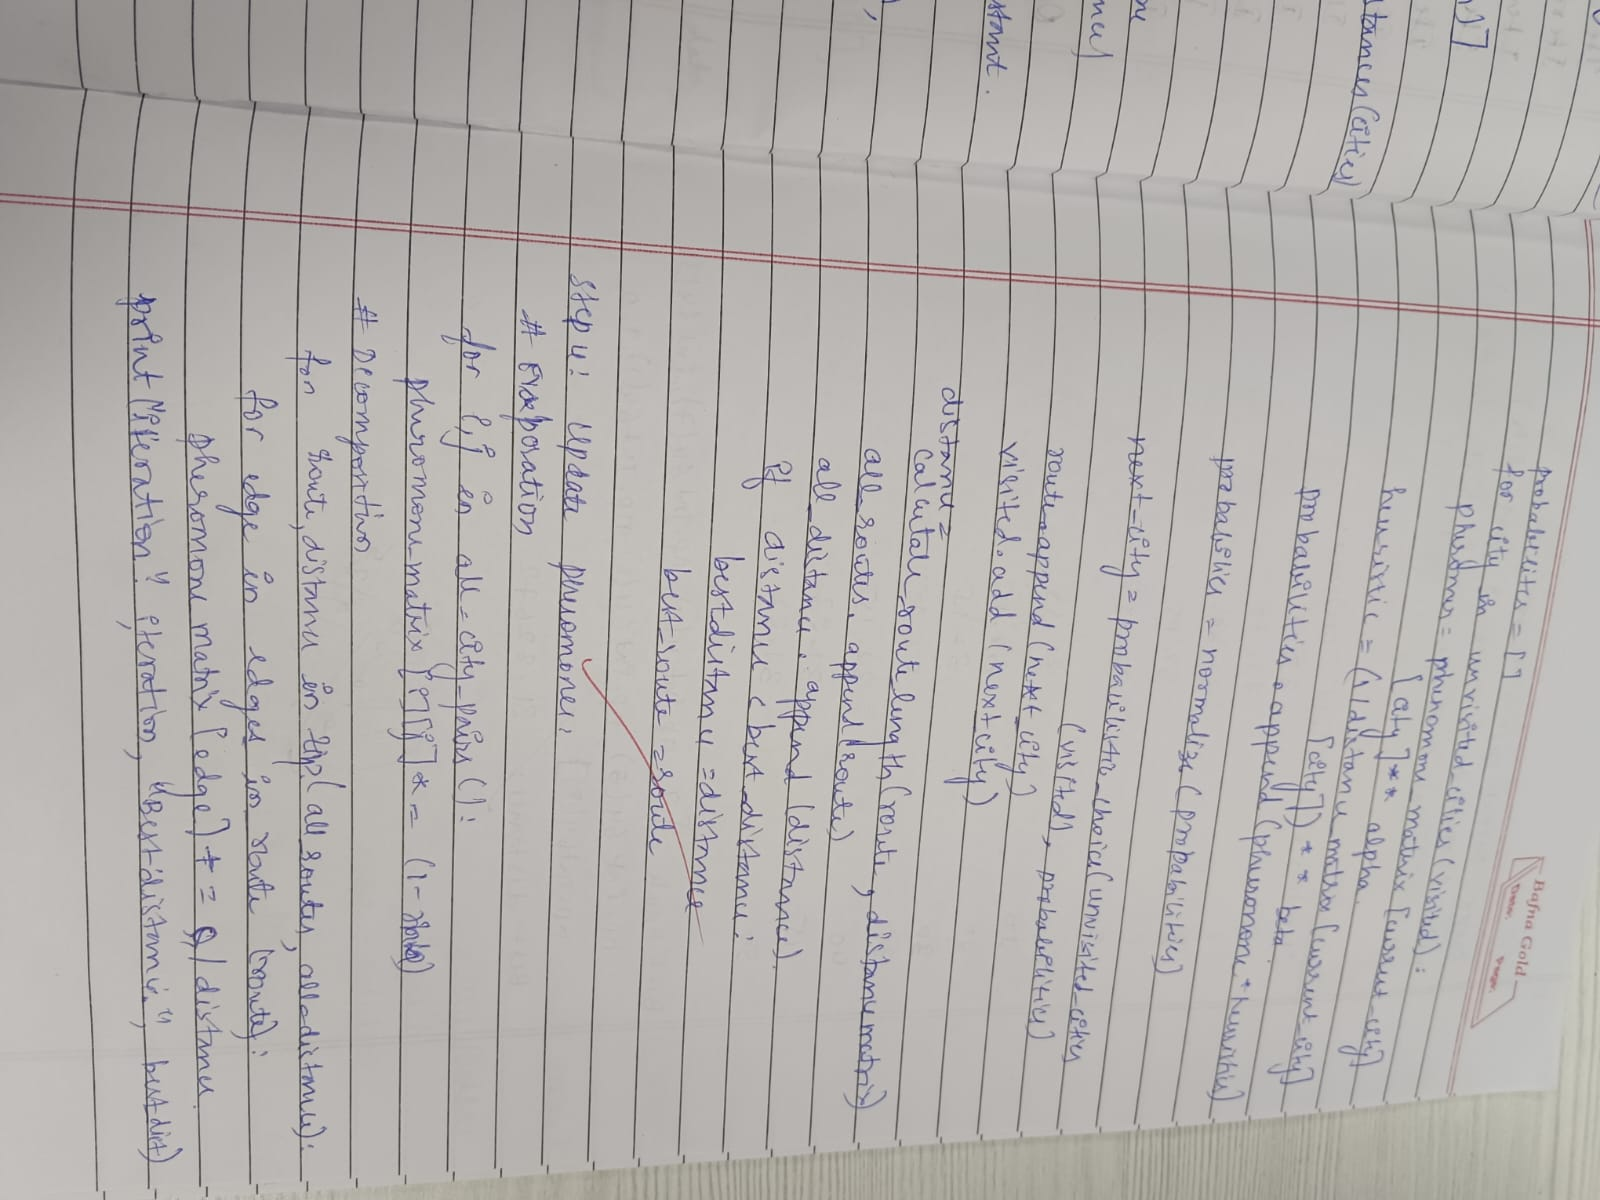 stances(cities)
stant.
Bafna Gold
Date:
Page:
probabilites = [ ]
for city in univisited_cities(visited):
pheromones = phenomone_matrix[current_city]
[city]** alpha.
heuristic = (1/distance matrix[current_city]
[city]) ** beta.
probabilities.append(pheromone * heuristics)
probabilities = normalize(probabilities)
next_city = probabilistic_choice(unvisited_cities
(visited), probabilities)
route.append(next_city)
visited.add(next_city)
distance =
Calculate_route_length(route, distance matrix)
all_routes.append(route)
all_distance.append(distance).
if distance < best_distance:
best distance = distance
best_route = route
Step 4: Update pheromones:
# Evaporation
for i,j in all_city_pairs():
pheromone_matrix[i][j] *= (1-
# Decomposition
for route, distance in zip(all routes, all_distance):
for edge in edges in route (route):
pheromone matrix[edge] += Q/distance.
print("Iteration", iteration, "Best distance:", best dist)